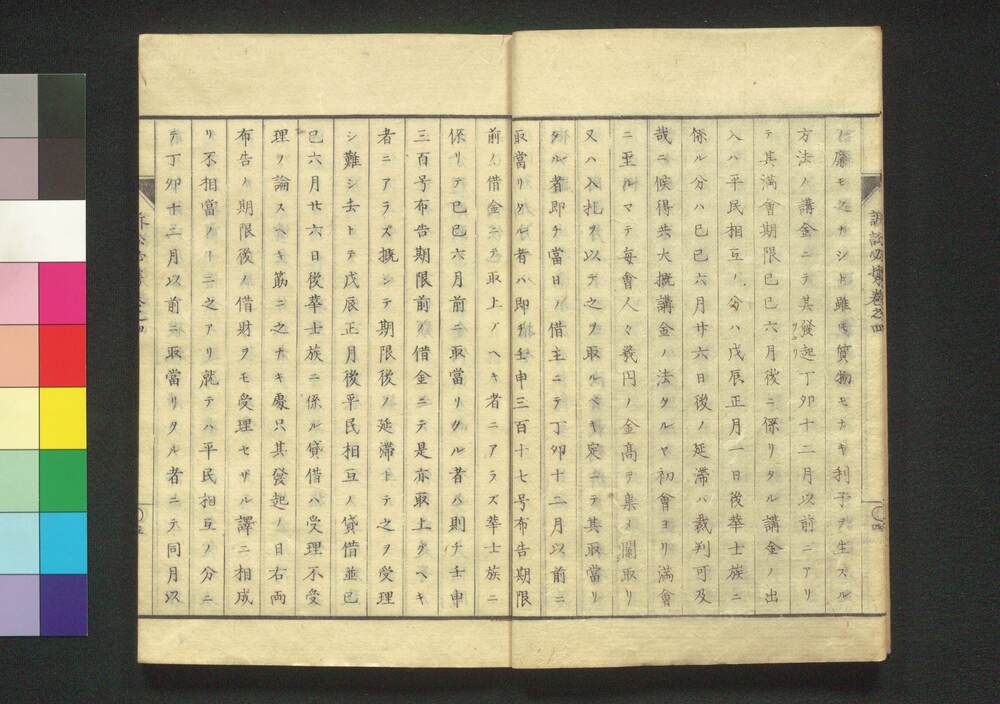 訴訟必携卷之四
廉モ之ナシト雖モ質物モナキ利子ヲ生スル
方法ノ講金ニテ其發起丁卯十二月以前ニアリ
テ其満會期限已巳六月後ニ係リタル講金ノ出
入ハ平民相互ノ分ハ戊辰正月一日後華士族ニ
係ル分ハ已巳六月廿六日後ノ延滞ハ裁判可及
哉ニ候得共大概講金ノ法タルヤ初會ヨリ満會
ニ至ルマテ毎會人々幾円ノ金高ヲ集メ鬮取リ
又ハ入札ヲ以テ之ヲ取ルヘキ定ニテ其取當リ
タル者即チ當日ノ借主ニテ丁卯十二月以前ニ
取當リタル者ハ即チ壬申三百十七号布告期限
前ノ借金ニテ取上クヘキ者ニアラズ華士族ニ
係リテ已巳六月前ニ取當リタル者ハ則チ壬申
三百号布告期限前ノ借金ニテ是亦取上クヘキ
者ニアラズ概シテ期限後ノ延滞トテ之ヲ受理
シ難シ去トテ戊辰正月後平民相互ノ貸借並已
巳六月廿六日後華士族ニ係ル貸借ハ受理不受
理ノ論スヘキ筋ニ之ナキ處只其發起ノ日右両
布告ノ期限後ノ借財ヲモ受理セザル譯ニ相成
リ不相當ノ二之アリ就テハ平民相互ノ分ニ
テ丁卯十二月以前ニ取當リタル者ニテ同月以